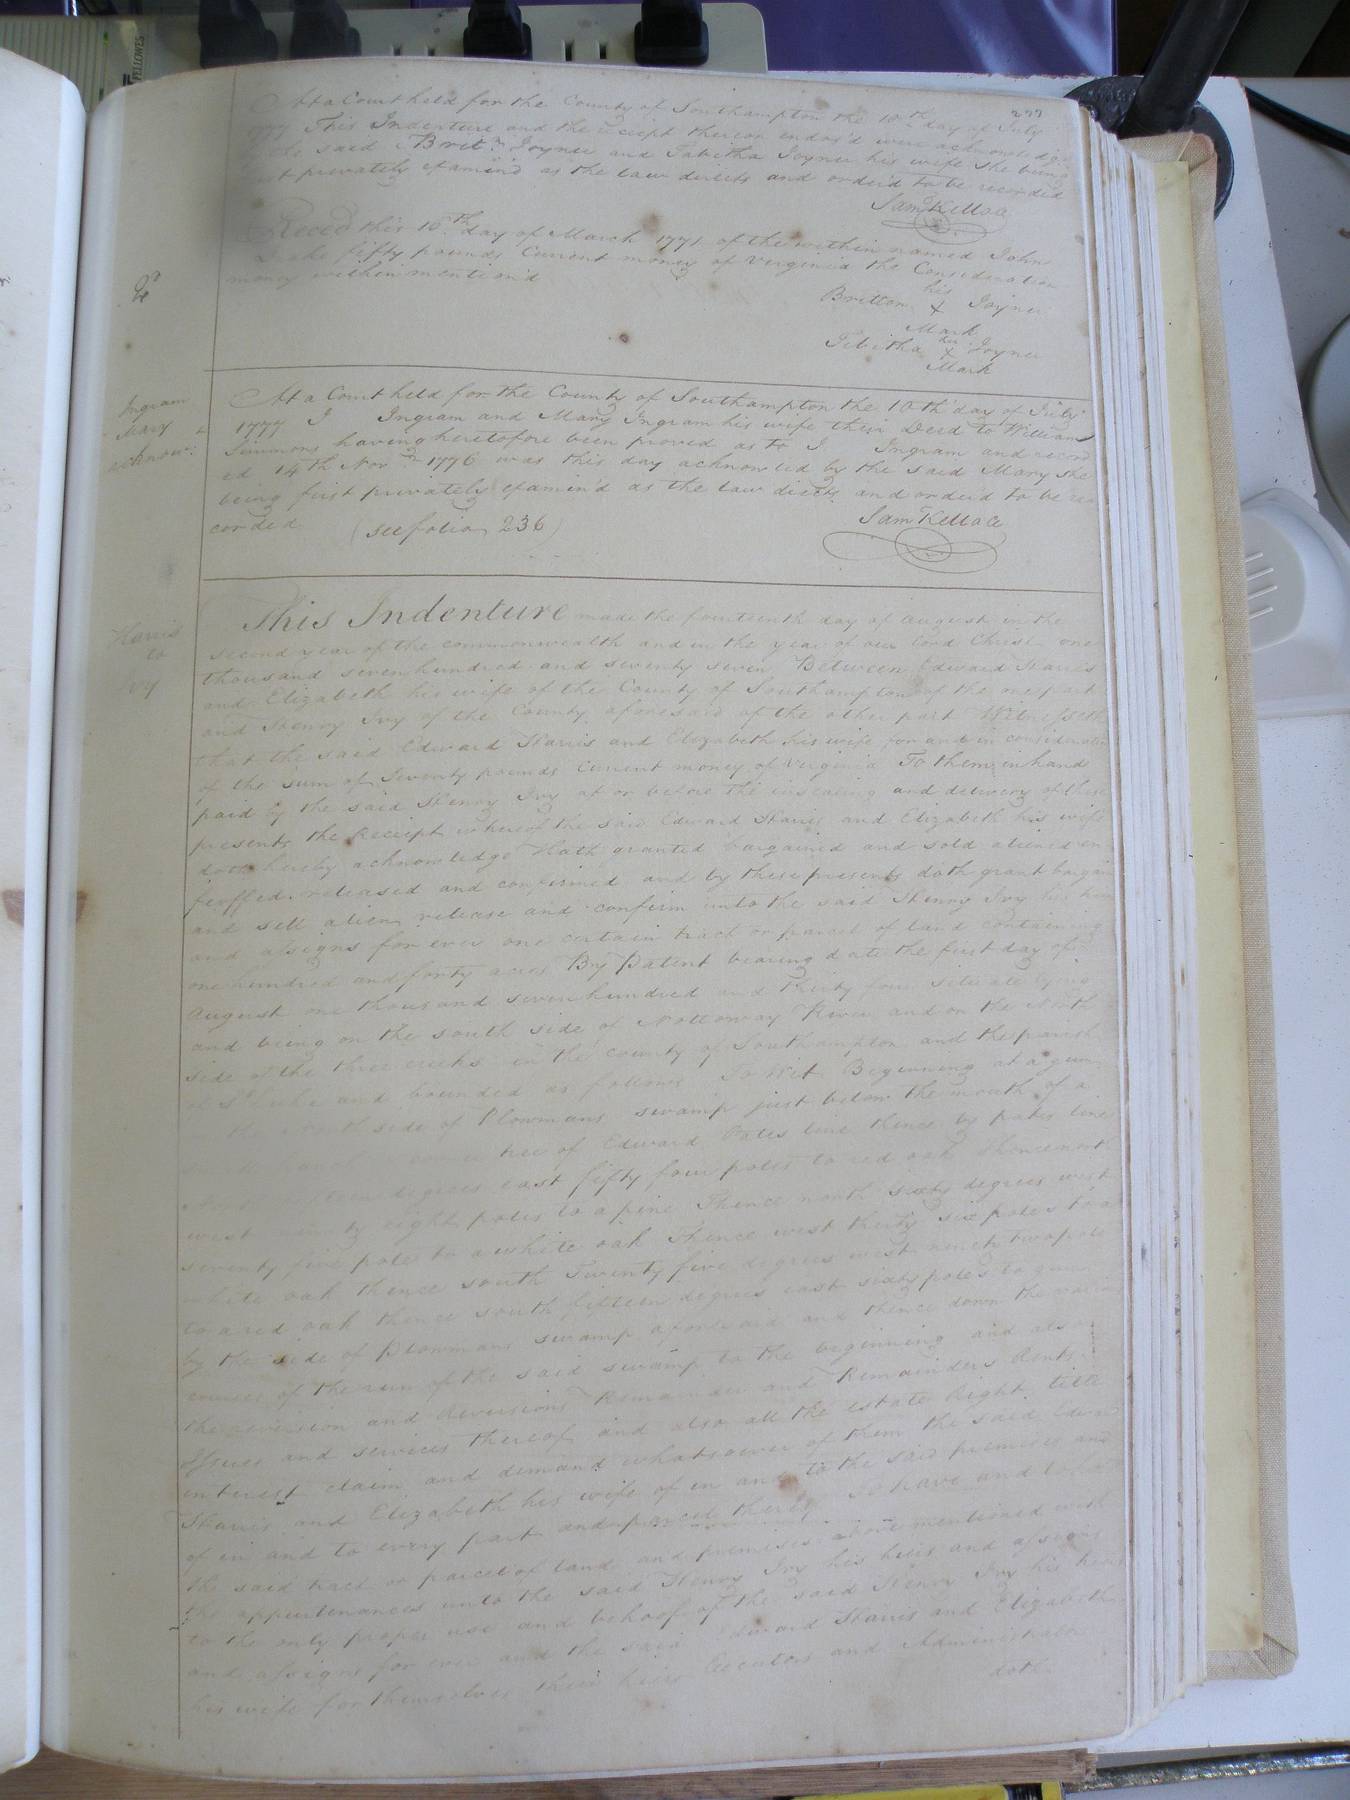 277
At a Court held for the County of Southampton the 10th day of July
1777 This Indenture and the receipt thereon endors'd were acknowledg
the said Brit.n Joyner and Tabitha Joyner his wife she being
privately examin'd as the law directs and order'd to be recorded
Sam Kelloe
Reced this 10th day of March 1771 of the within named John
Drake fifty pounds Current money of Virginia the Consideration
money within mention'd
his
Britton X Joyner
Mark
Tabitha her Joyner
X
Mark
Ingram
Mary
acknow:
At a Court held for the County of Southampton the 10th day of July
1777 J Ingram and Mary Ingram his wife their Deed to William
Simmons having heretofore been proved as to J Ingram and record
ed 14th Nov 1776 was this day acknowled by the said Mary she
being first privately examin'd as the law directs and order'd to be re
corded (see folio 236)
Sam Kelloe
Harris
to
Ivy
This Indenture made the fourteenth day of august in the
second year of the commonwealth and in the year of our lord Christ one
thousand seven hundred and seventy seven Between Edward Harris
and Elizabeth his wife of the County of Southampton of the one part
and Henry Ivy of the County aforesaid of the other part Witnesseth
that the said Edward Harris and Elizabeth his wife for and in consideration
of the sum of Seventy pounds current money of Virginia To them in hand
paid by the said Henry Ivy at or before the insealing and delivery of these
presents the Receipt whereof the said Edward Harris and Elizabeth his wife
doth hereby acknowledge Hath granted bargained and sold aliened en
feoffed released and confirmed and by these presents doth grant bargain
and sell alien release and confirm unto the said Henry Ivy his heirs
and assigns for ever one certain tract or parcel of land containing
one hundred and forty acres By Patent bearing date the first day of
August one thousand seven hundred and thirty four situate lying
and being on the south side of Nottoway River and on the North
side of the three creeks in the county of Southampton and the parish
of St Luke and bounded as follows To Wit Beginning at a gum
the side of Plowmans swamp just below the mouth of a
tree of Edward Pates line thence by pates line
degrees east fifty four poles to red oak Thence north
west eight poles to a pine Thence north sixty degrees west
seventy five pole to a white oak Thence west thirty six poles to a
white oak thence south Twenty five degrees west ninety two pole
to a red oak thence south fifteen degrees east sixty poles to gum
by the side of Plowmans swamp aforesaid and thence down the various
courses of the run of the said swamp to the beginning and also
the reversion and Reversions Remainder and Remainders Rents
Issues and services thereof and also all the estate Right title
interest claim and demand whatsoever of them the said Edwar
Harris and Elizabeth his wife of in and to the said premises and
of in and to every part and parcel thereof To have and to hold
the said tract or parcel of land and premises above mentioned with
the appurtenances unto the said Henry Ivy his heirs and assigns
to the only proper use and behoof of the said Henry Ivy his heirs
and assigns for ever and the said Edward Harris and Elizabeth
his wife for themselves their heirs Executors and Administrators
doth